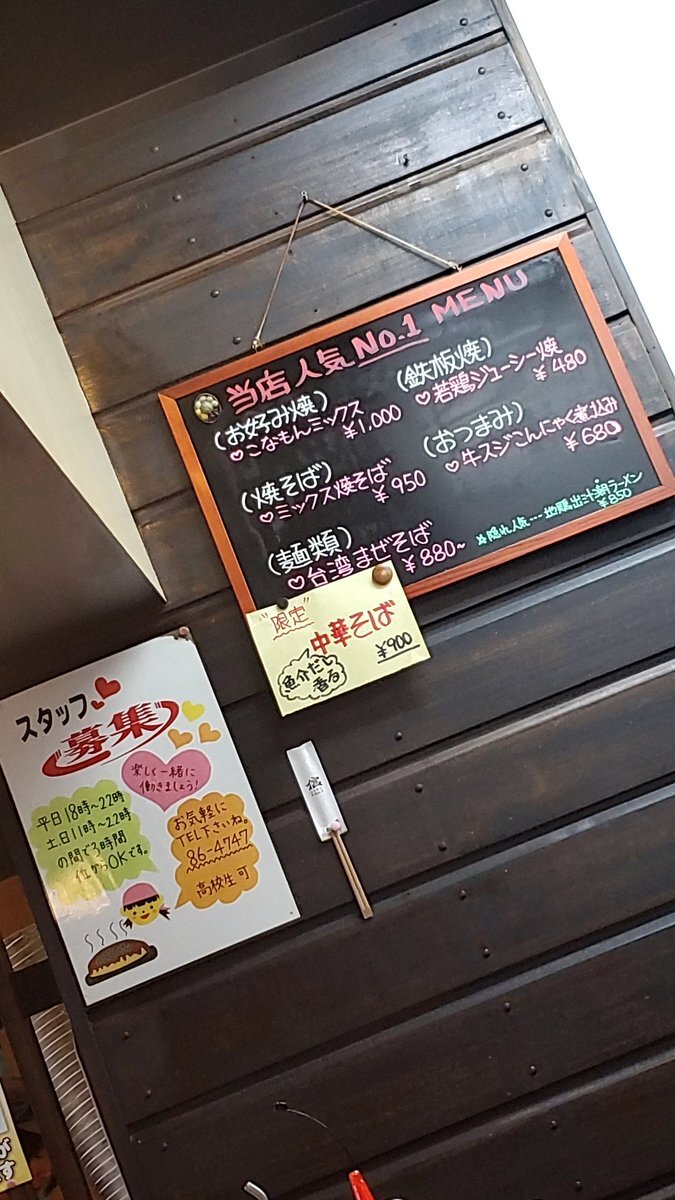 当店人気No.1 MENU
(お好み焼)
♡こなもんミックス
¥1,000
(焼そば)
♡ミックス焼そば
¥950
(麺類)
♡台湾まぜそば
¥880~
(鉄板焼)
♡若鶏ジューシー焼
¥480
(おつまみ)
♡牛スジこんにゃく煮込み
¥680
隠れ人気・・・地鶏出汁潮ラーメン
¥850
"限定"
中華そば
魚介だし
香る
¥900
スタッフ
募集
楽しく一緒に
働きましょう!
平日18時~22時
土日11時~22時
の間で3時間
位からOKです。
お気軽に
TEL下さいね。
86-4747
高校生可